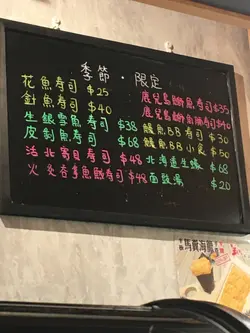 季節・限定
花魚寿司 $25
針魚寿司 $40
生銀雪魚寿司 $38
皮剥魚寿司 $68
活北寄貝寿司 $48
火炙吞拿魚腩寿司 $48
鹿兒島鰤魚寿司 $35
鹿兒島鰤魚腩寿司 $40
鰻魚BB寿司 $30
鰻魚BB小食 $50
北海道生蠔 $68
面豉湯 $20
馬糞海膽